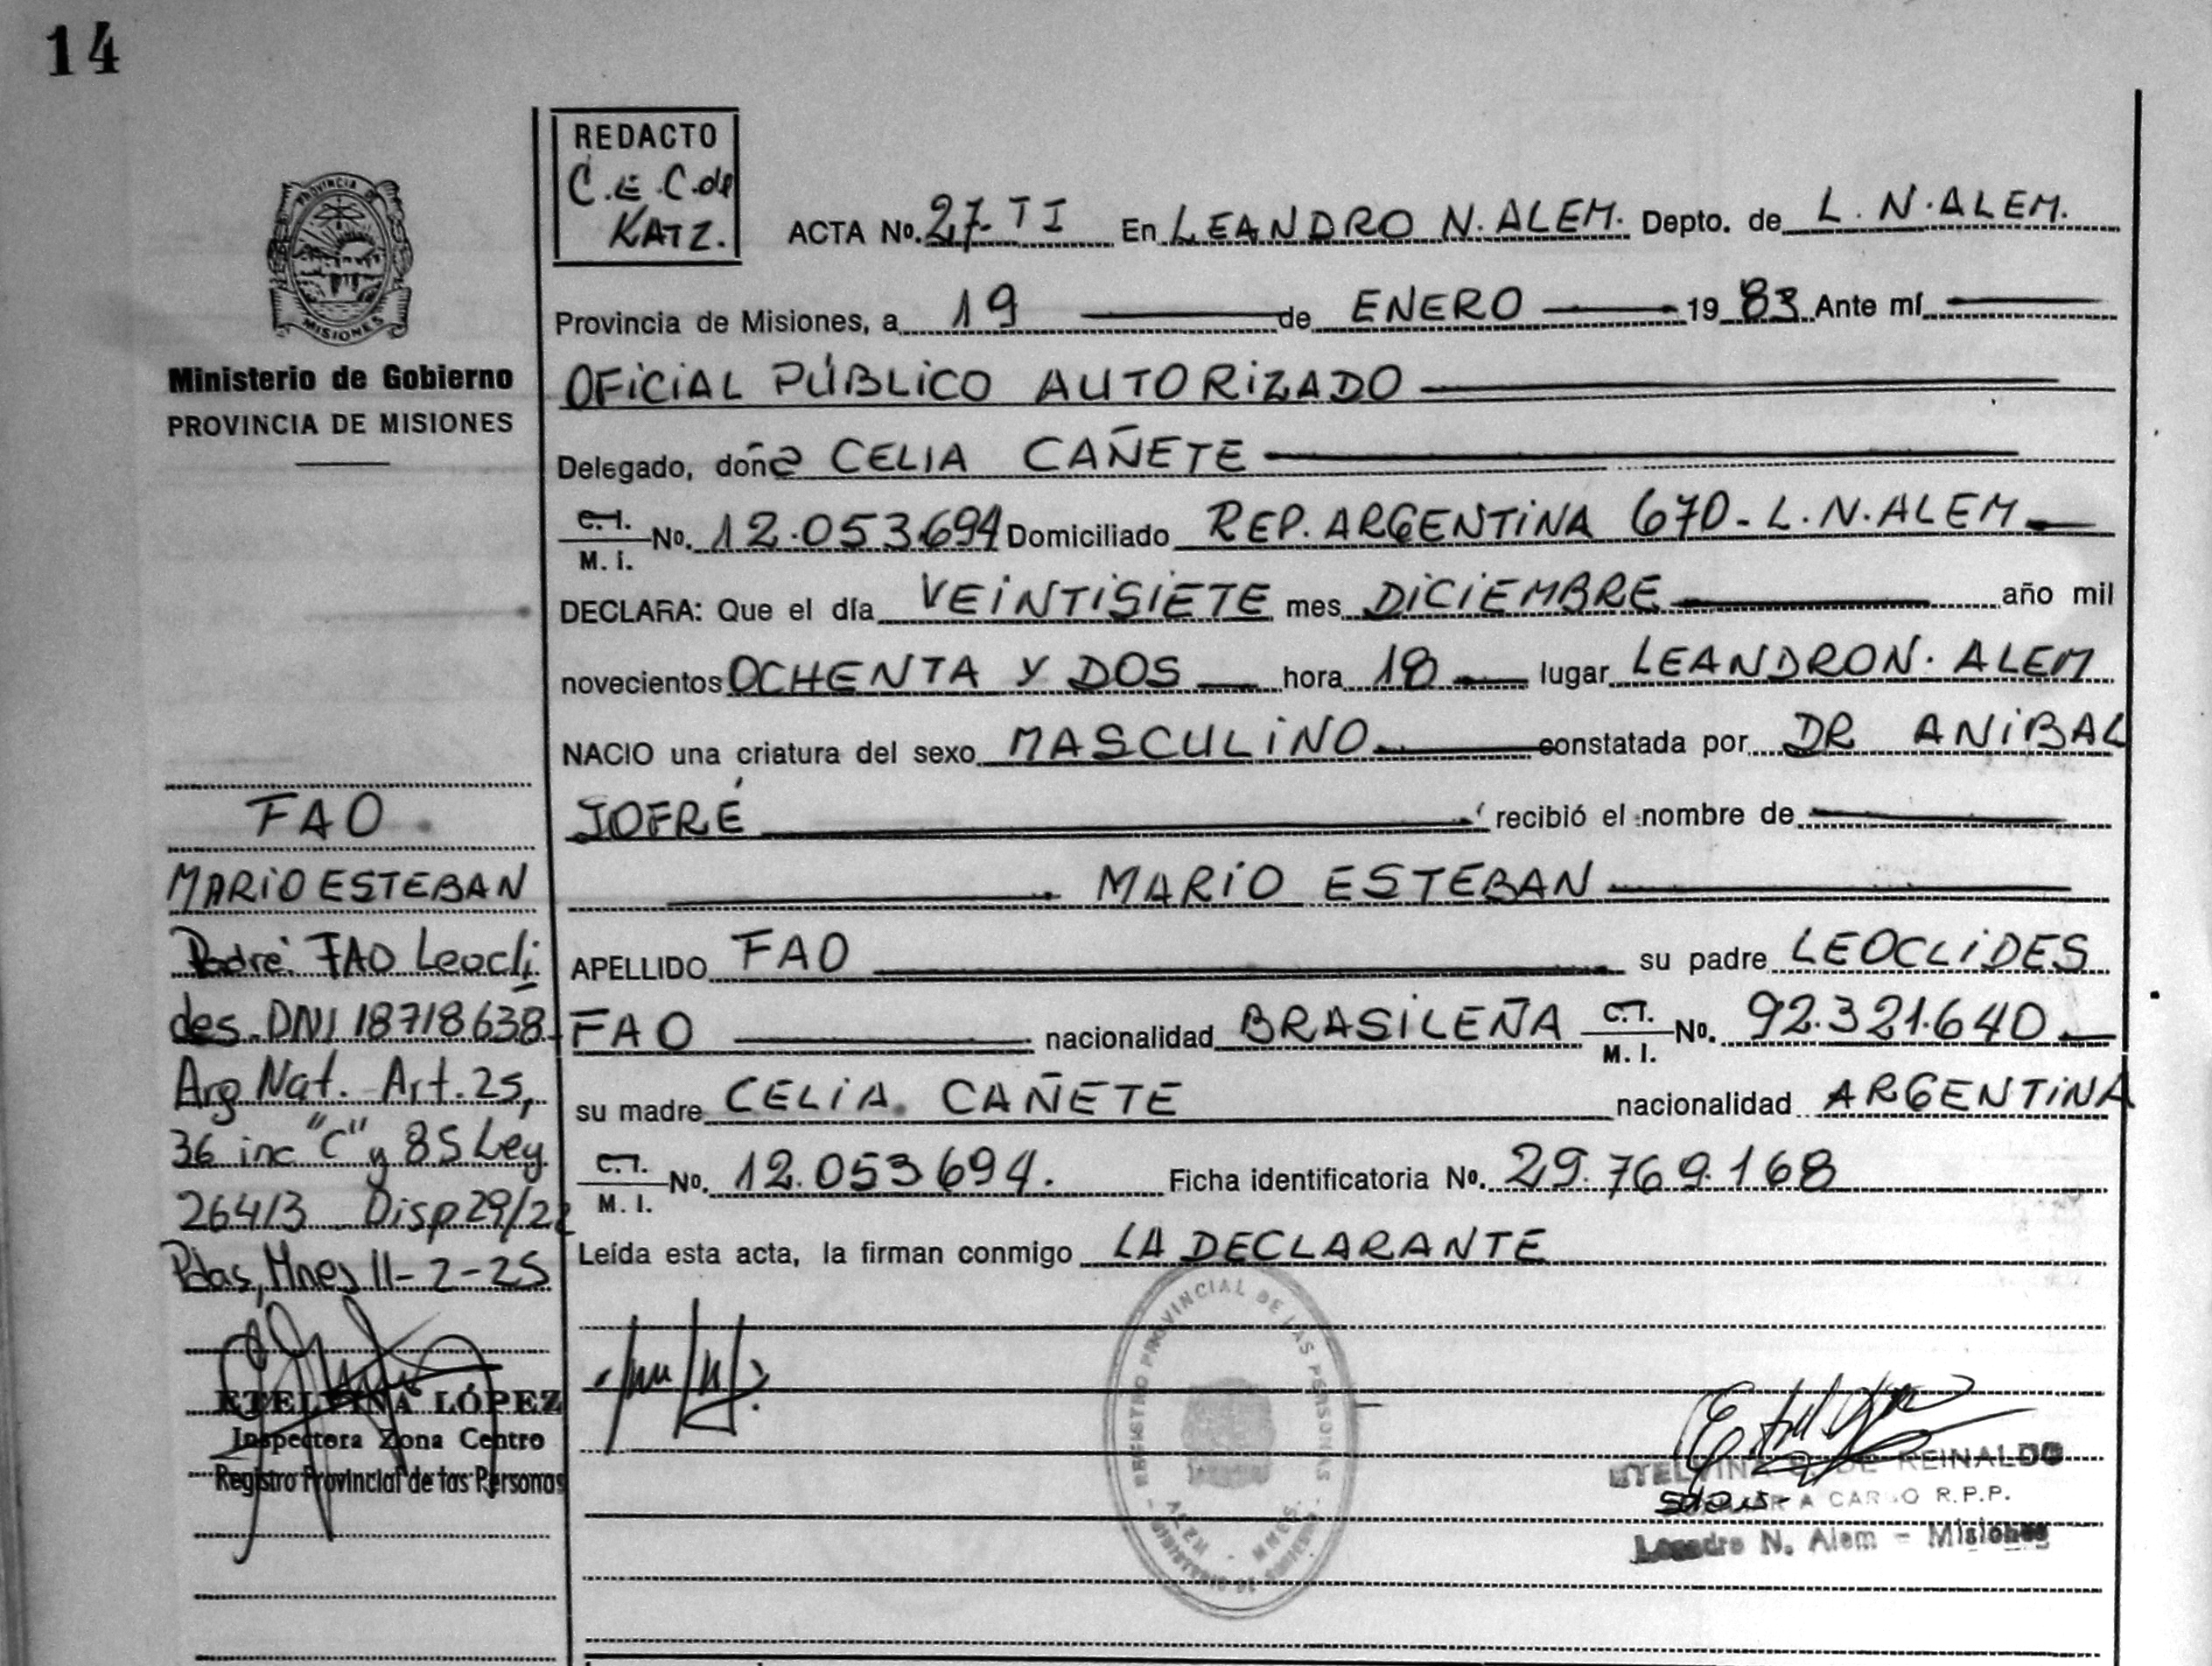 14
REDACTO
C.E.C. de
KATZ.
PROVINCIA DE
MISIONES
Ministerio de Gobierno
PROVINCIA DE MISIONES
ACTA No. 27- TI En LEANDRO N. ALEM. Depto. de L. N. ALEM.
Provincia de Misiones, a 19 de ENERO 19 83 Ante mí
OFICIAL PÚBLICO AUTORIZADO
Delegado, doña CELIA CAÑETE
C.I. M. I. No. 12.053.694 Domiciliado REP. ARGENTINA 670- L.N. ALEM
DECLARA: Que el día VEINTISIETE mes DICIEMBRE año mil
novecientos OCHENTA Y DOS hora 18 lugar LEANDRO N. ALEM
NACIO una criatura del sexo MASCULINO constatada por DR ANIBAL
JOFRÉ recibió el nombre de
MARIO ESTEBAN
APELLIDO FAO su padre LEOCLIDES
FAO nacionalidad BRASILEÑA C.I. M. I. No. 92.321.640
su madre CELIA CAÑETE nacionalidad ARGENTINA
C.I. M. I. No. 12.053694. Ficha identificatoria No. 29.769.168
Leída esta acta, la firman conmigo LA DECLARANTE
FAO
MARIO ESTEBAN
Padre: FAO Leocli
des. DNI 18718638
Arg Nat. Art. 25,
36 inc "C" y 85 Ley
26413 Disp 29/22
Pdas, Mnes 11-2-25
ETELVINA LÓPEZ
Inspectora Zona Centro
Registro Provincial de las Personas
REGISTRO PROVINCIAL DE LAS PERSONAS
ETELVINA DE REINALDO
A CARGO R.P.P.
Leandro N. Alem - Misiones